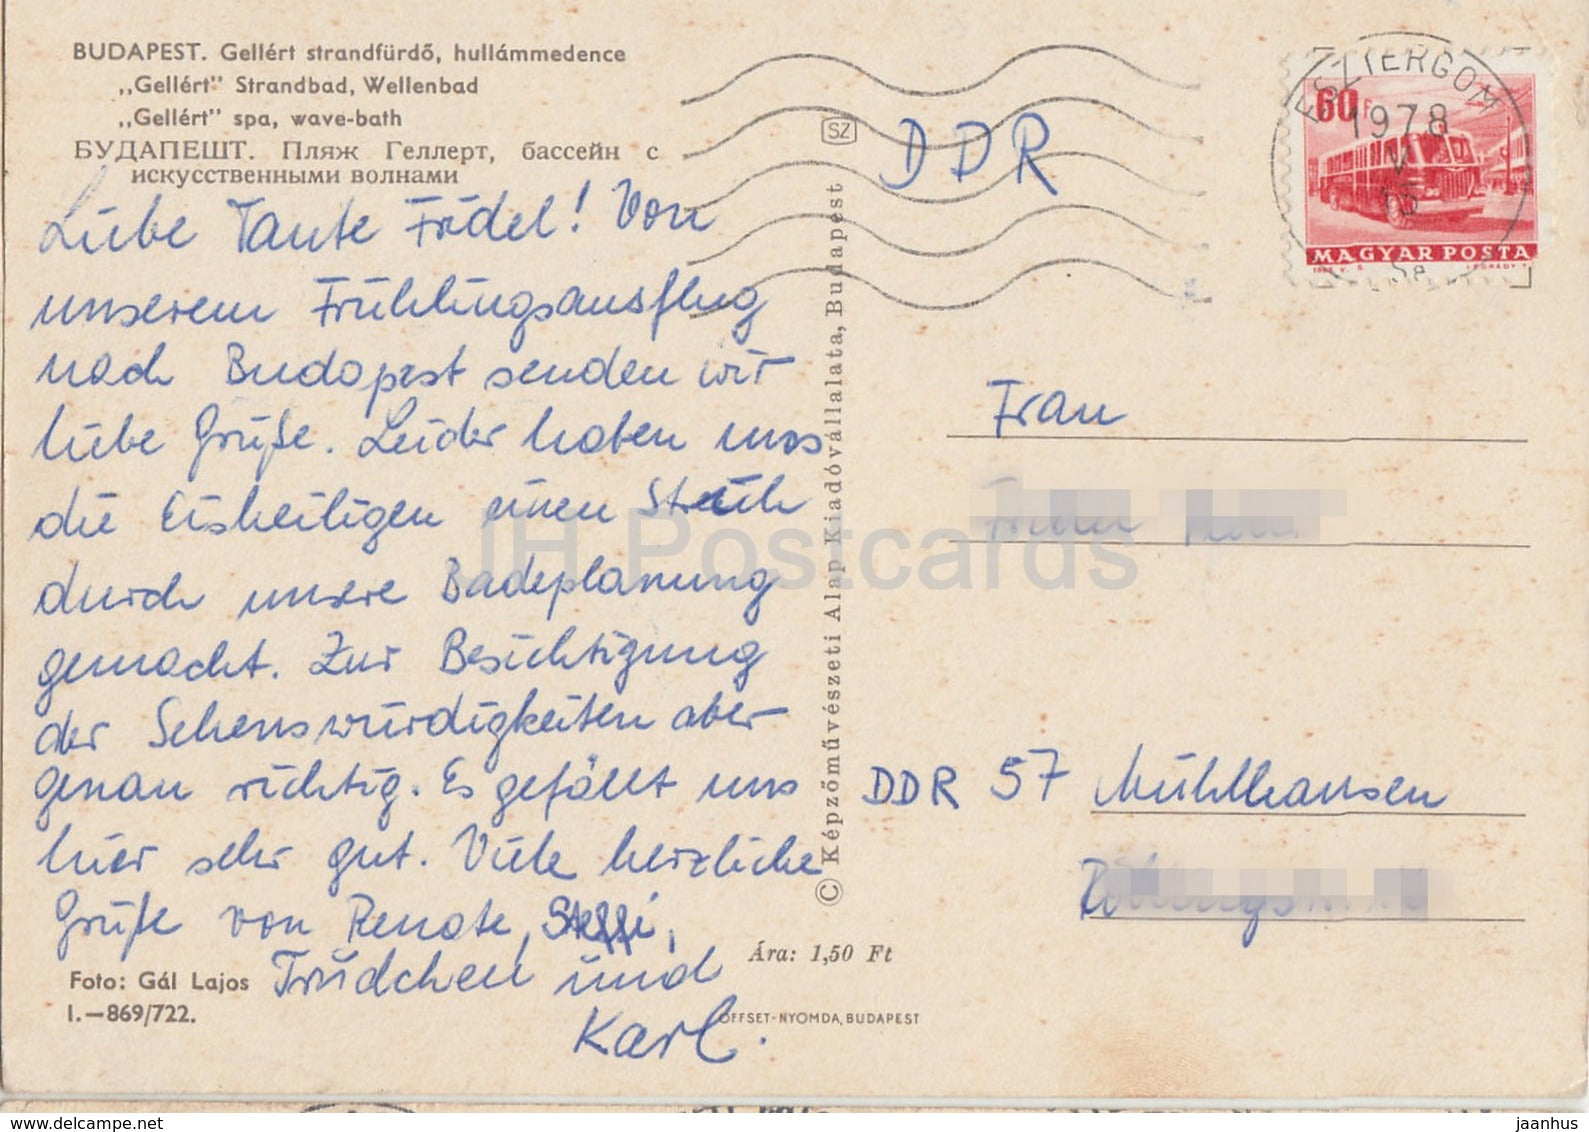 BUDAPEST. Gellért strandfürdő, hullámmedence
„Gellért" Strandbad, Wellenbad
„Gellért" spa, wave-bath
БУДАПЕШТ. Пляж Геллерт, бассейн с
искусственными волнами
Liebe Tante Friedel! Von
unserem Frühlingsausflug
nach Budapest senden wir
liebe Grüße. Leider haben uns
die Eisheiligen einen Strich
durch unsere Badeplanung
gemacht. Zur Besichtigung
der Sehenswürdigkeiten aber
genau richtig. Es gefällt uns
hier sehr gut. Viele herzliche
Grüße von Renate, Steffi,
Trudchen und
Karl.
Foto: Gál Lajos
I.—869/722.
SZ
© Képzőművészeti Alap Kiadóvállalata, Budapest
Ára: 1,50 Ft
OFFSET-NYOMDA, BUDAPEST
DDR
ESZTERGOM
1978
V
60 f
MAGYAR POSTA
Frau
DDR 57 Mühlhausen
JH Postcards
www.delcampe.net
jaanhus